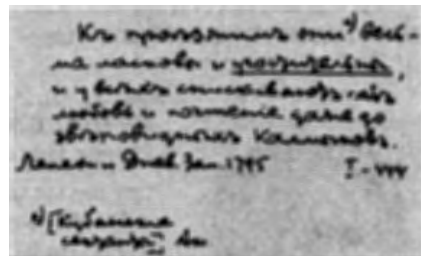 Къ проѣзжимъ они *) весь-
ма ласковы и уважительны,
и у всѣхъ снискиваютъ себѣ
любовь и почтеніе даже до
звѣровидныхъ Калмыковъ.
Лепехин Днев. Зап. 1795 I -
*) [Кубанские
казаки]